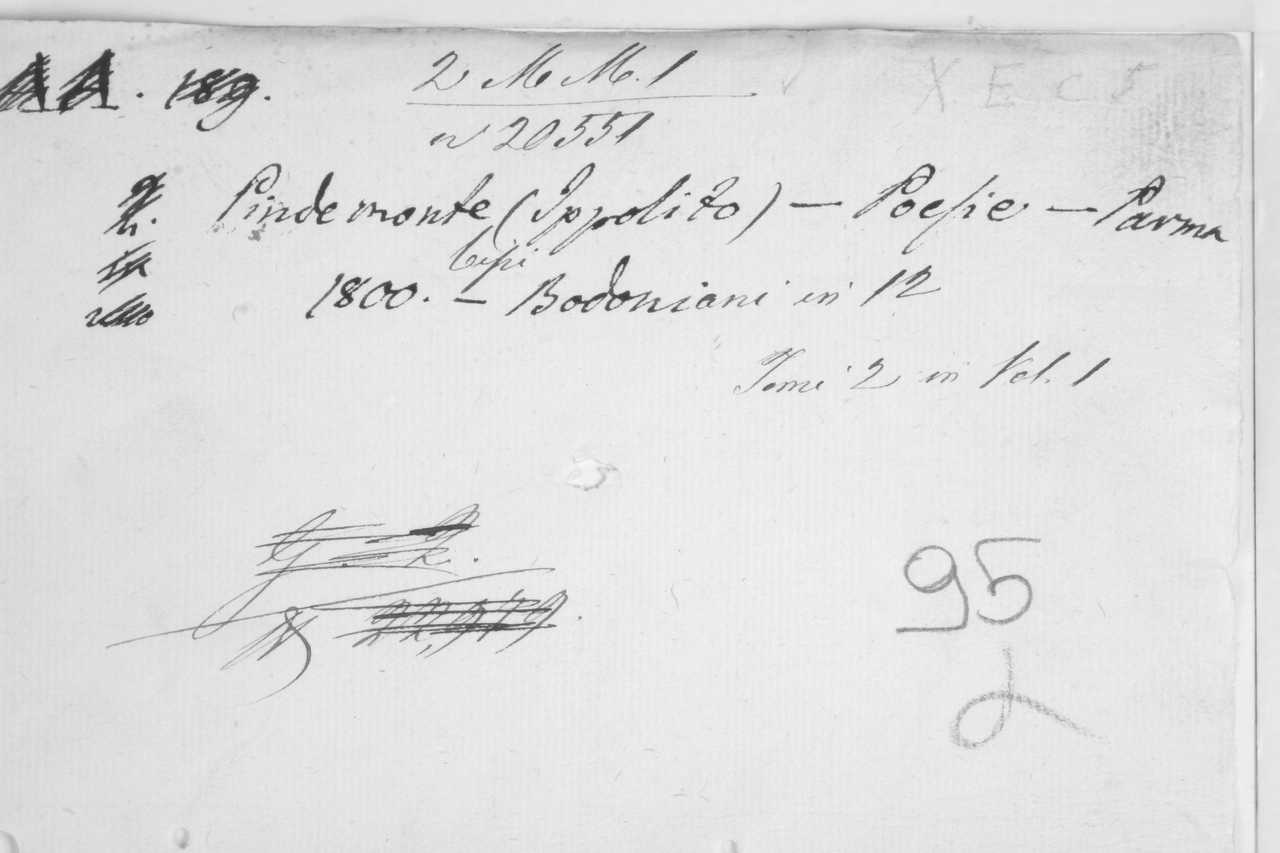 2 M M. 1 X E C 5
n 20551
Pindemonte (Ippolito) — Poesie — Parma
tipi
1800. — Bodoniani in 12
Tomi 2 in Vol. 1
95
2